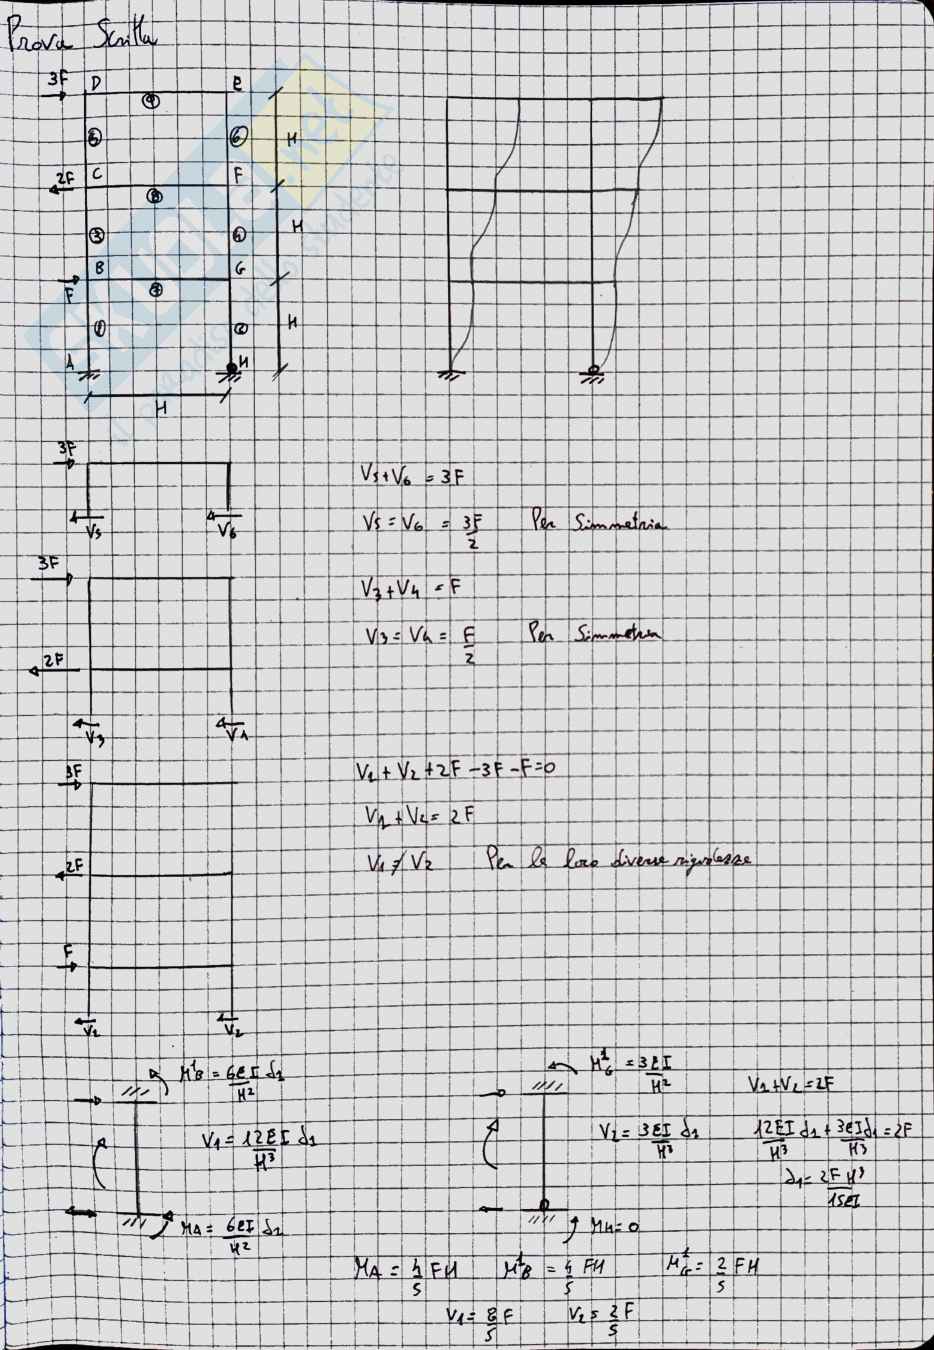 Prova Scritta
3F D E
④
⑤ ⑥ H
2F C F
⑧
③ ④ H
B G
F ⑦
① ② H
A H
H
3F
V5 V6
V5+V6 = 3F
V5 = V6 = 3F/2 Per Simmetria
3F
2F
V3 V4
V3+V4 = F
V3 = V4 = F/2 Per Simmetria
3F
2F
F
V1 V2
V1 + V2 + 2F - 3F - F = 0
V1 + V2 = 2F
V1 ≠ V2 Per le loro diverse rigidezze
M¹B = 6EI/H² d1
V1 = 12EI/H³ d1
MA = 6EI/H² d1
M¹G = 3EI/H²
V2 = 3EI/H³ d1
MH = 0
V1 + V2 = 2F
12EI/H³ d1 + 3EI/H³ d1 = 2F
d1 = 2FH³/15EI
MA = 4/5 FH M¹B = 4/5 FH M¹G = 2/5 FH
V1 = 8/5 F V2 = 2/5 F